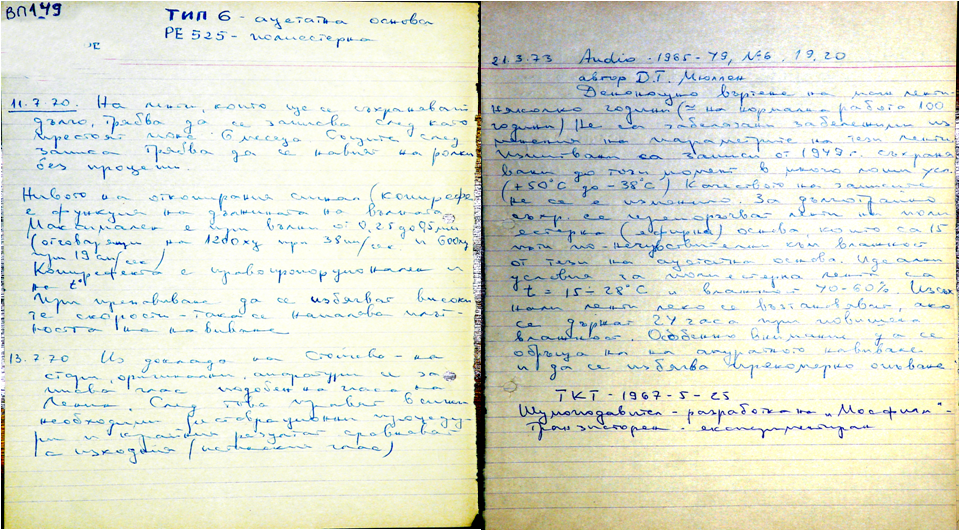 ВП 1.49
ТИП 6 - ацетатна основа
РЕ 525 - полиестерна
"Е
11.7.70. На ленти, които ще се съхраняват
дълго, трябва да се записва след като
престоят поне 6 месеца. Същите след
записа трябва да се навият на ролки
без процепи.
Нивото на откопирания сигнал (копирефект)
е функция на дължината на вълната
Максимален е при вълни от 0,25 до 0,5 mm
(отговарящи на 1200 хц при 38 см/сек и 600 хц
при 19 см/сек)
Копирефекта е правопропорционален и
на t°
При пренавиване да се избягват високи
те скорости - така се намалява плът-
ността на навиване
13.7.70 Из доклада на - на
стари, оригинални, апаратури и за
писва глас подобен на гласа на
Ленин. След това правят всички
необходими реставрационни процеду-
ри и крайния резултат сравняват
с изходния (истински глас)
21.3.73 Audio - 1965 - 49, №6, 19,20
автор D.T. Мюллен
Денонощно въртене на мотн ленти
няколко години (≈ на нормална работа 100
години) Не са забелязани забележими из
менения на параметрите на тези ленти.
Изпитвани са записи от 1948 г. съхраня
вани до този момент в много лоши усл.
(+50°C до -38°C) Качеството на записите
не се е изменило. За дълготрайно
съхр. се препоръчват ленти на поли
естерна (ефирна) основа, които са 15
пъти по-нечувствителни към влажност
от тези на ацетатна основа. Идеални
условия за полиестерна лента са
t = 15-28°C и влажност 40-60%. Изсъх
нали ленти леко се възстановяват, ако
се държат 24 часа при повишена
влажност. Особено внимание да се
обръща на на акуратното навиване
и да се избягва прекомерно опъване
ТКТ - 1967 - 5 - 25
Шумоподавител - разработка на "Мосфилм" -
Транзисторен - експериментиран